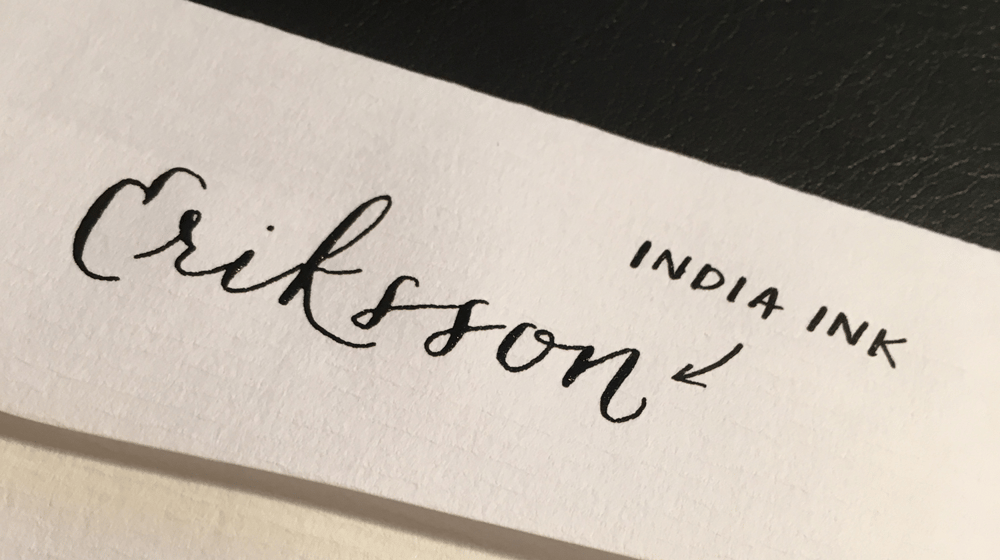 Eriksson
INDIA INK